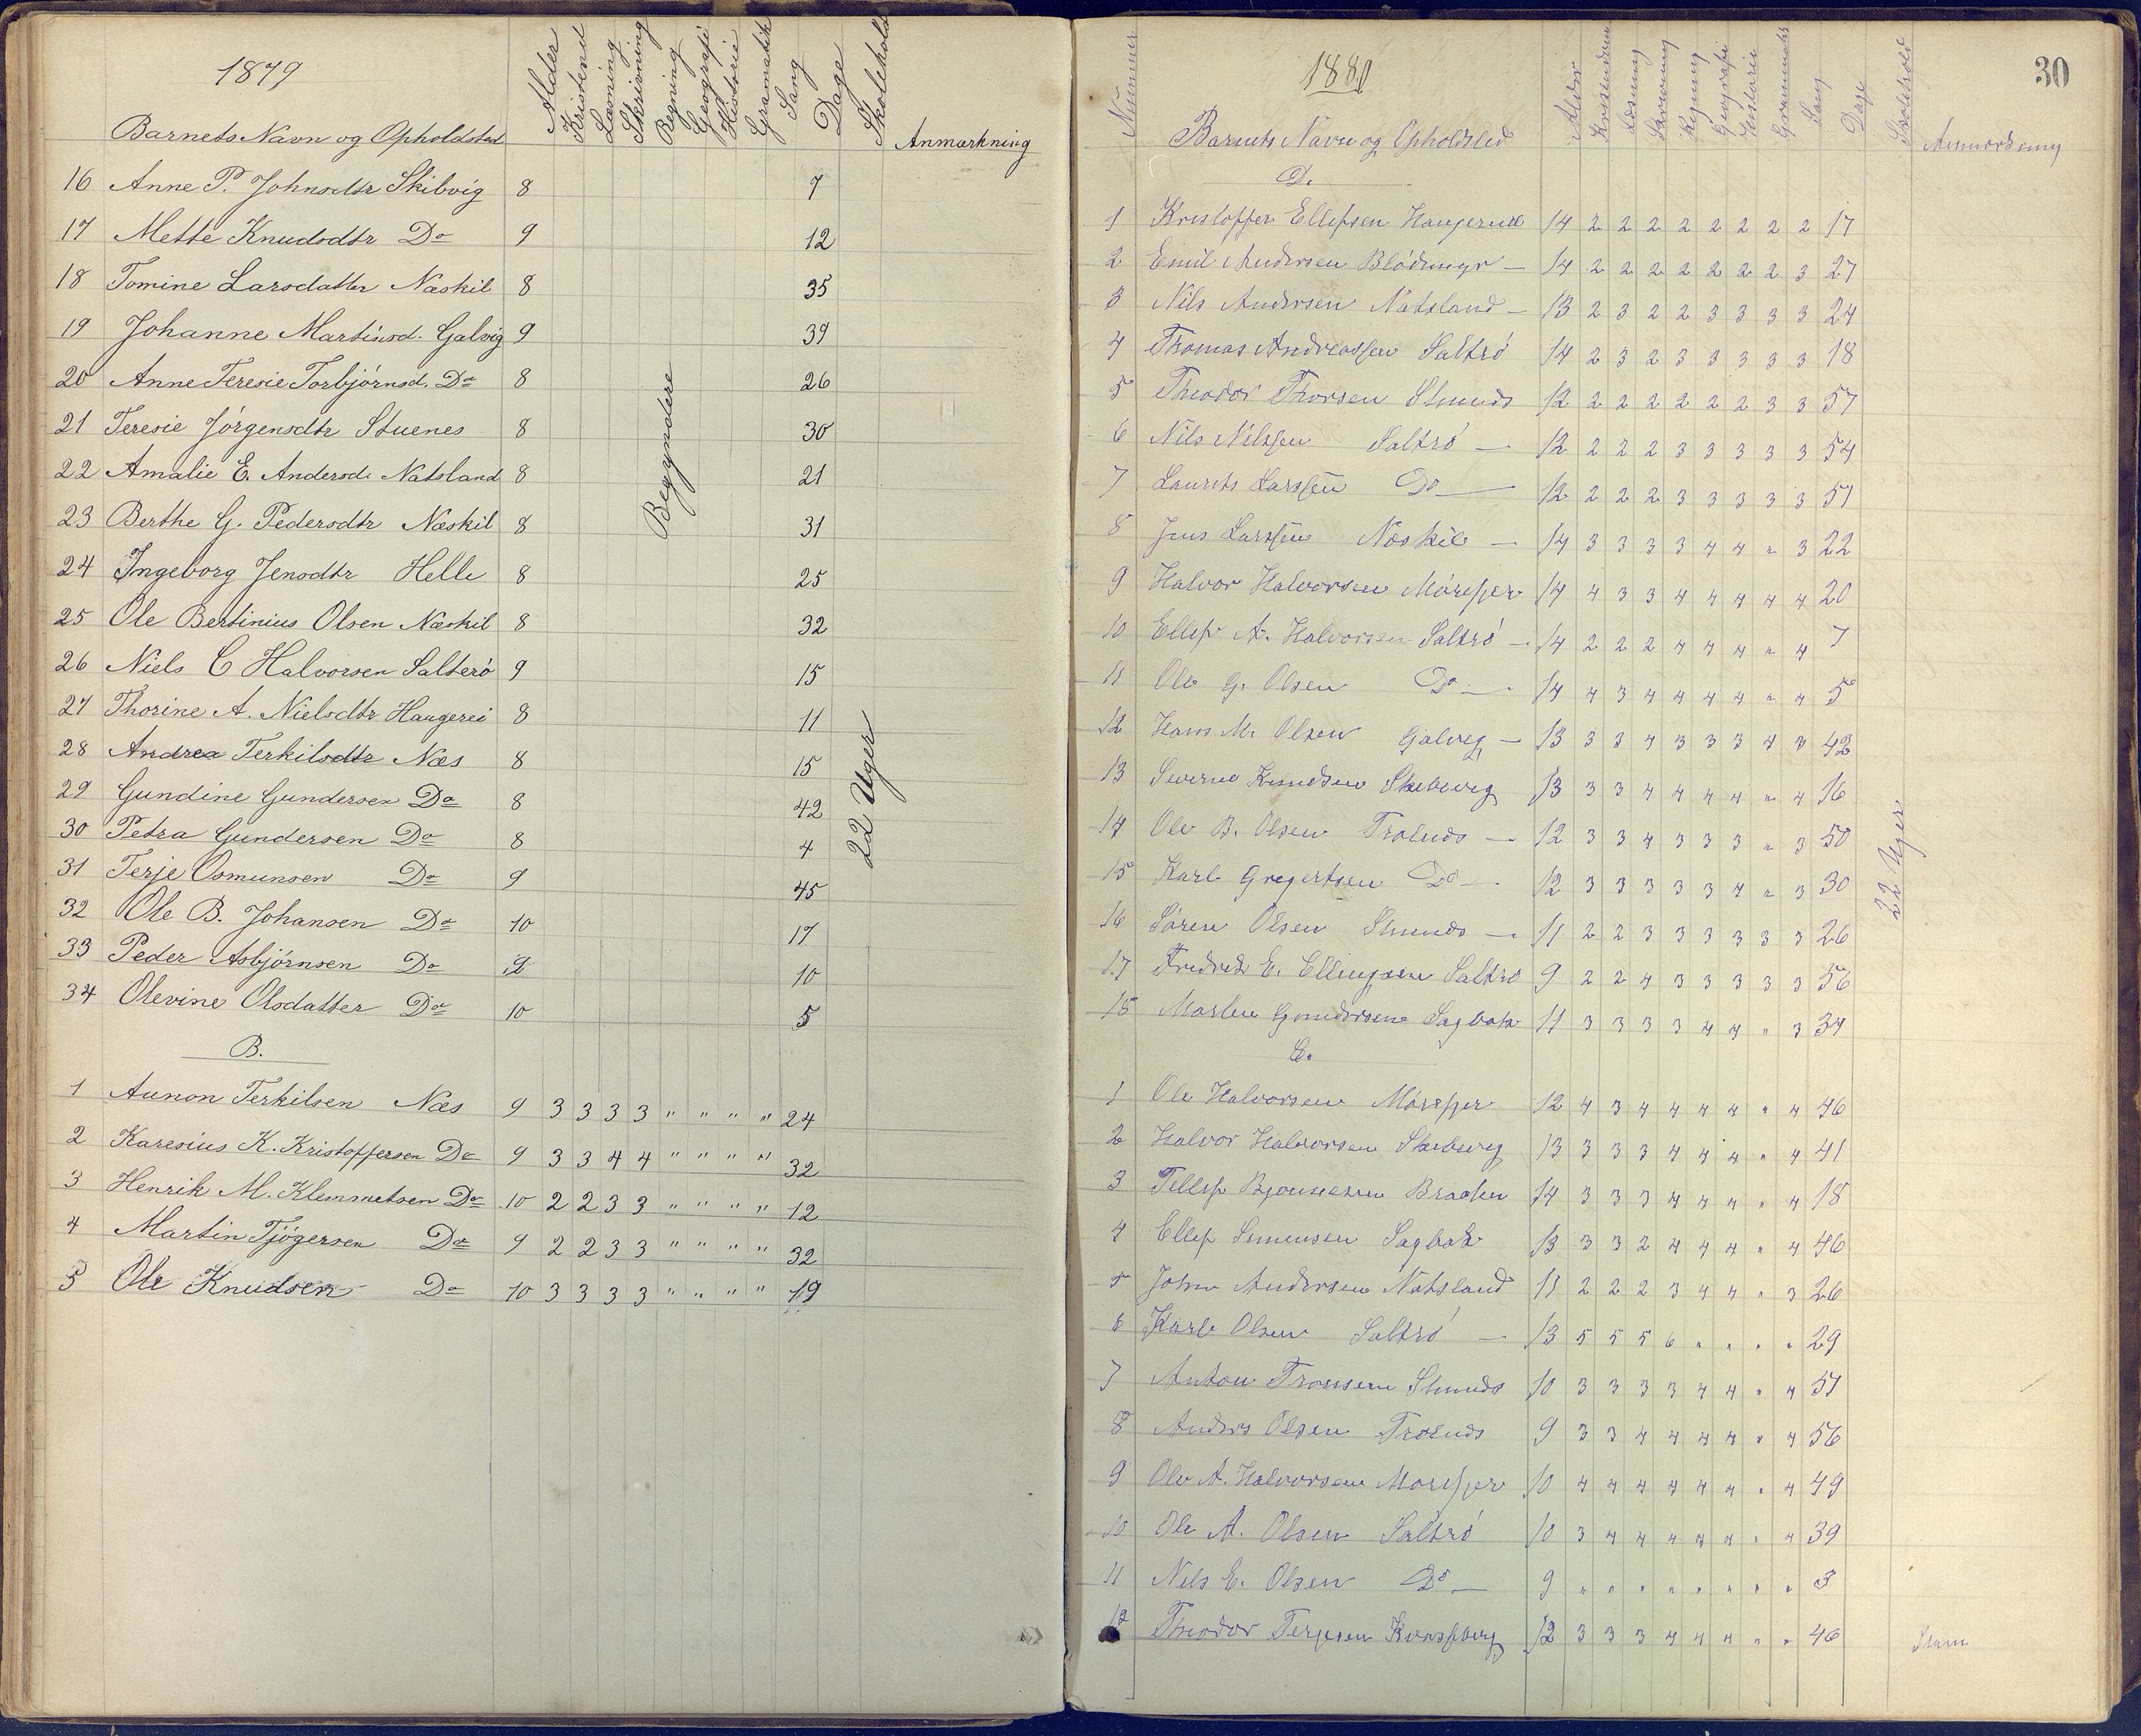 1879
Barnets Navn og Opholdsted Alder Kristend Læsning Skrivning Regning Geografi Historie Gramatik Sang Dage Skolehold Anmærkning
16 Anne P. Johnsdtr Skibvig 8 7
17 Mette Knudsdtr Do 9 12
18 Tomine Larsdatter Næskil 8 35
19 Johanne Martinsd. Galvig 9 39
20 Anne Teresie Torbjörnsd. Do 8 26
21 Teresie Jörgensdtr Stuenes 8 30
22 Amalie E. Andersd. Natsland 8 21
23 Berthe G. Pedersdtr Næskil 8 31
24 Ingeborg Jensdtr Helle 8 25
25 Ole Bertinius Olsen Næskil 8 32
26 Niels C Halvorsen Salterö 9 15
27 Thorine A. Nielsdtr Haugerei 8 11
28 Andrea Terkilsdtr Næs 8 15
29 Gundine Gundersen Do 8 42
30 Petra Gundersen Do 8 4
31 Terje Osmunsen Do 9 45
32 Ole B. Johansen Do 10 17
33 Peder Asbjörnsen Do 9 10
34 Olevine Olsdatter Do 10 5
Begyndere
22 Uger
B.
1 Aunon Terkilsen Næs 9 3 3 3 3 " " " " 24
2 Karesius K. Kristoffersen Do 9 3 3 4 4 " " " " 32
3 Henrik M. Klemmetsen Do 10 2 2 3 3 " " " " 12
4 Martin Tjögersen Do 9 2 2 3 3 " " " " 32
5 Ole Knudsen Do 10 3 3 3 3 " " " " 19
30
1880
Nummer Barnets Navn og Opholdsted Alder Kristendom Læsning Skrivning Regning Geografi Historie Gramatik Sang Dage Skolehold Anmærkning
D.
1 Kristoffer Ellefsen Haugerud 14 2 2 2 2 2 2 2 2 17
2 Emil Andersen Blödmyr 14 2 2 2 2 2 2 2 3 27
3 Nils Andersen Natsland 13 2 3 2 2 3 3 3 3 24
4 Thomas Andreassen Saltrö 14 2 3 2 3 3 3 3 3 18
5 Theodor Thorsen Stuends 12 2 2 2 2 2 2 3 3 57
6 Nils Nilssen Saltrö 12 2 2 2 3 3 3 3 3 54
7 Laurits Larssen Do 12 2 2 2 3 3 3 3 3 51
8 Jens Larssen Næskil 14 3 3 3 3 4 4 " 3 22
9 Halvor Halvorsen Mörefjer 14 4 3 3 4 4 4 4 4 20
10 Ellef A. Halvorsen Saltrö 14 2 2 2 4 4 4 " 4 7
11 Ole G. Olsen Do 14 4 3 4 4 4 4 " 4 5
12 Hans M. Olsen Galvig 13 3 3 4 3 3 3 4 3 42
13 Severin Knudsen Skibvig 13 3 3 4 4 4 4 " 4 16
14 Ole B. Olsen 12 3 3 4 3 3 3 " 3 50
15 Karl Gregertsen Do 12 3 3 3 3 3 4 " 3 30
16 Sören Olsen Stuends 11 2 2 3 3 3 3 3 3 26
17 Fredrik E. Ellingsen Saltrö 9 2 2 4 3 3 3 3 3 56
18 Morten Gundersen Sagbak 11 3 3 3 3 4 4 " 3 34
22 Uger
E.
1 Ole Halvorsen Mörefjer 12 4 3 4 4 4 4 " 4 46
2 Halvor Halvorsen Skibvig 13 3 3 3 4 4 4 " 4 41
3 Tellef Bjonnesen 14 3 3 3 4 4 4 " 4 18
4 Ellef Simensen Sagbak 13 3 3 2 4 4 4 " 4 46
5 John Andersen Natsland 11 2 2 2 3 4 4 " 3 26
6 Karl Olsen Saltrö 13 5 5 5 6 " " " " 29
7 Anton Tronsen Stuends 10 3 3 3 3 4 4 " 4 51
8 Anders Olsen 9 3 3 4 4 4 4 " 4 56
9 Ole A. Halvorsen Mörefjer 10 4 4 4 4 4 4 " 4 49
10 Ole A. Olsen Saltrö 10 3 4 4 4 4 4 " 4 39
11 Nils E. Olsen Do 9 " " " " " " " " 3
12 Theodor Terjesen 12 3 3 3 4 4 4 " " 46